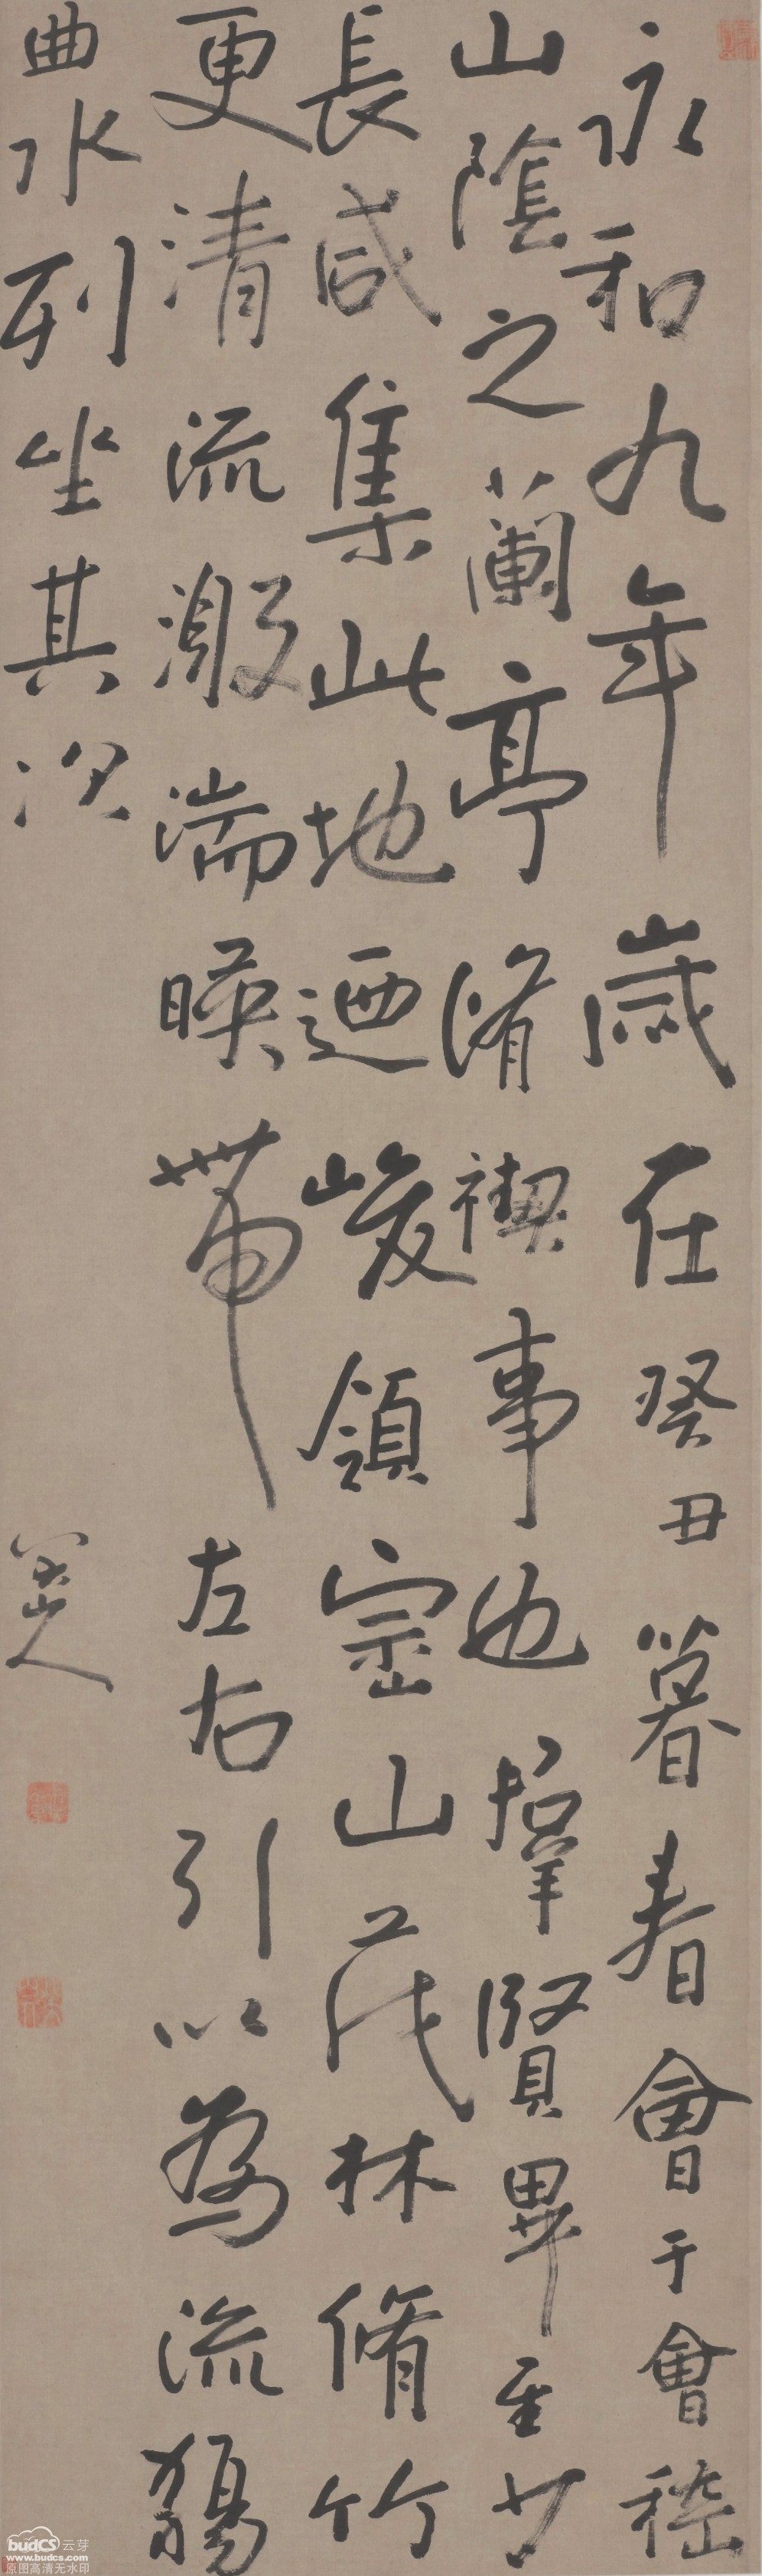 永和九年歲在癸丑暮春會于會稽
山陰之蘭亭脩禊事也羣賢畢至少
長咸集此地迺峻領崇山茂林脩竹
更清流激湍暎帶左右引以為流觴
曲水列坐其次
八大山人
budCS 云芽
www.budcs.com
原图高清无水印